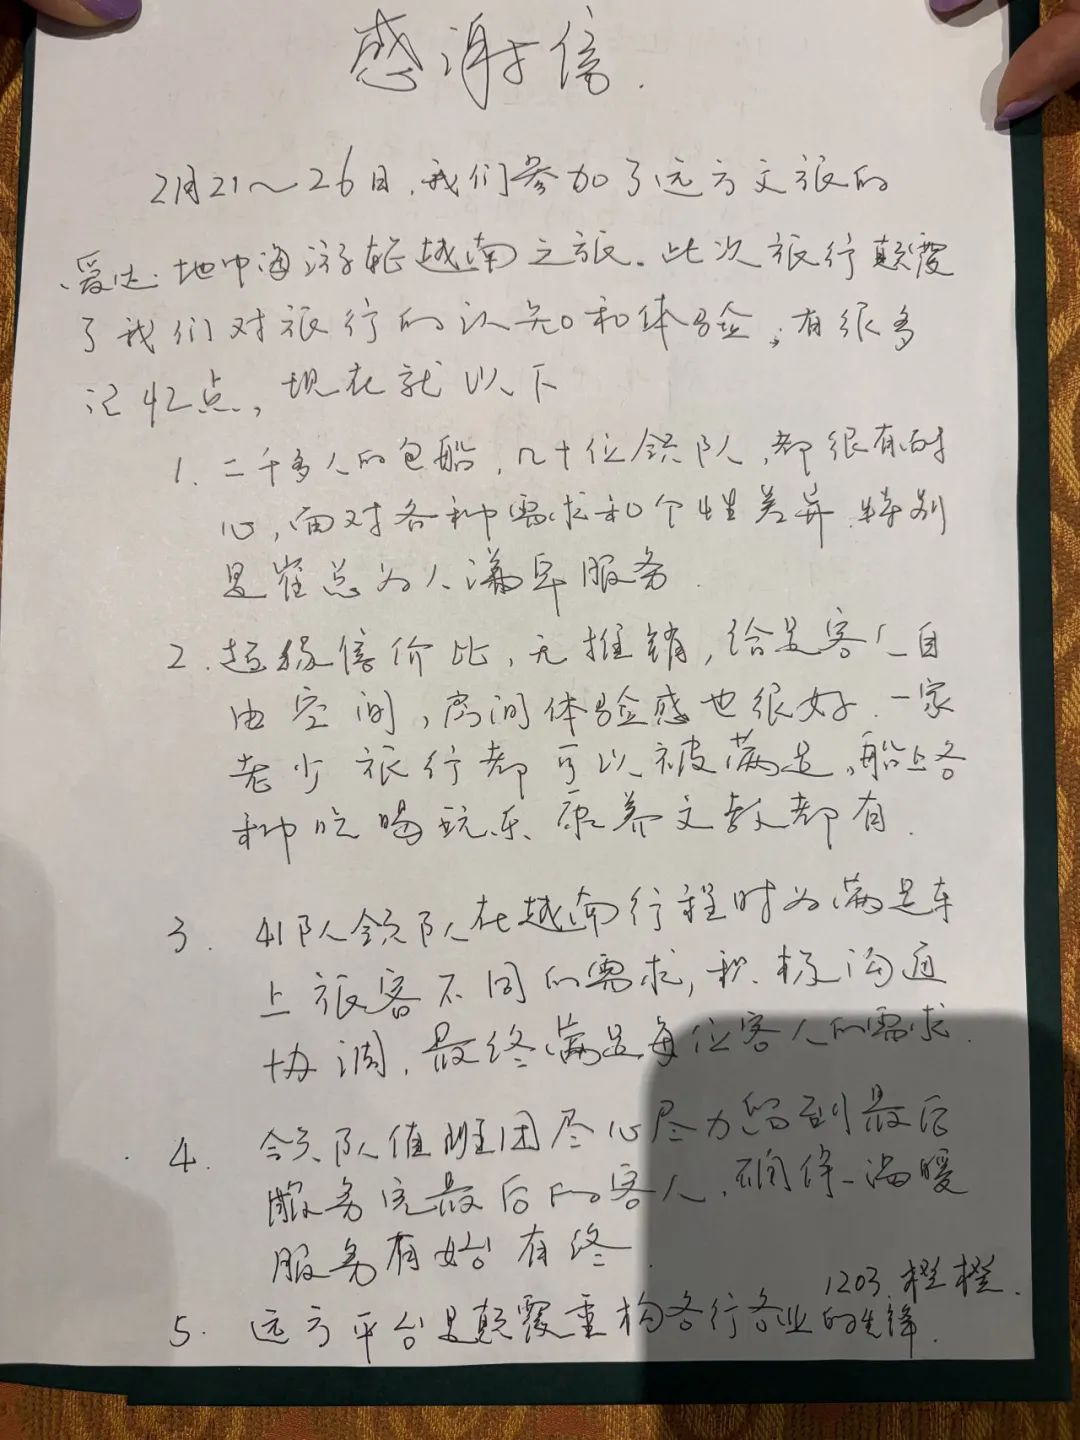 感谢信.
2月21～26日,我们参加了远方文旅的
爱达·地中海游轮越南之旅.此次旅行颠覆
了我们对旅行的认知和体验,有很多
记忆点,现在就以下
1. 二千多人的包船,几十位领队,都很有耐
心,面对各种需求和个性差异.特别
是崔总为人谦卑服务.
2. 超级倍价比,无推销,给足客人自
由空间,房间体验感也很好.一家
老少旅行都可以被满足,船上各
种吃喝玩乐康养文教都有.
3. 41队领队在越南行程时为满足车
上旅客不同的需求,积极沟通
协调,最终满足每位客人的需求.
4. 领队值班团尽心尽力留到最后
服务完最后的客人,确保温暖
服务有始有终.
1203.橙橙.
5. 远方平台是颠覆重构各行各业的先锋.